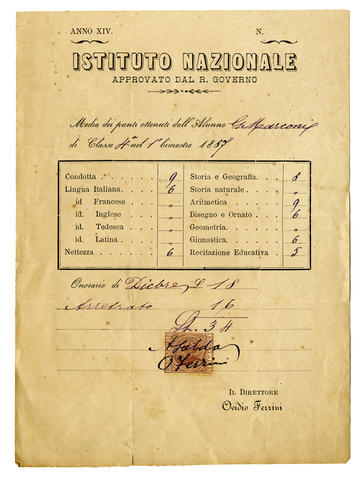 ANNO XIV.	N.
ISTITUTO NAZIONALE
APPROVATO DAL R. GOVERNO
Media dei punti ottenuti dall'Alunno G. Marconi
di Classe 4ª nel 1º bimestre 1887
Condotta . . . . 9	Storia e Geografia. . . 8
Lingua Italiana. . . . 6	Storia naturale . . . „
id. Francese . . . „	Aritmetica . . . 9
id. Inglese . . . „	Disegno e Ornato . . 6
id. Tedesca . . . „	Geometria. . . . „
id. Latina . . . „	Ginnastica. . . . 6
Nettezza . . . . 6	Recitazione Educativa . 5
Onorario di Dicbre £ 18
Arretrato 16
34
A Saldo
O Ferrini
IL DIRETTORE
Ovidio Ferrini